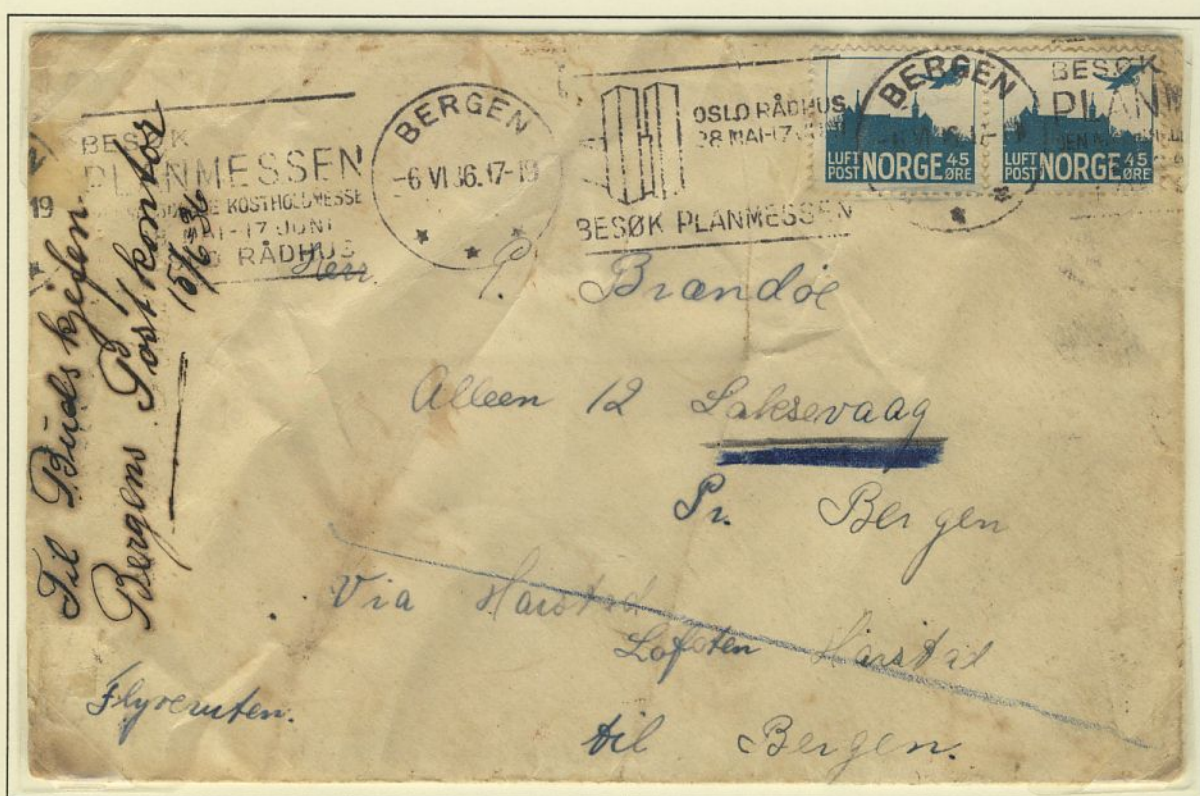 BESØK
PLANMESSEN
KOSTHOLDMESSE
17 JUNI
RÅDHUS
BERGEN
-6 VI 36.17-19
OSLO RÅDHUS
28 MAI-17
BESØK PLANMESSEN
BERGEN
BESØK
PLAN
LUFT POST NORGE 45 ØRE
LUFT POST NORGE 45 ØRE
19
Til Budskjefen
Bergens Postkontor
15/6-36
Herr.
P. Brandøe
Alleen 12 Laksevaag
Pr. Bergen
Via Harstad
Lofoten Harstad
Flyveruten.
til Bergen.